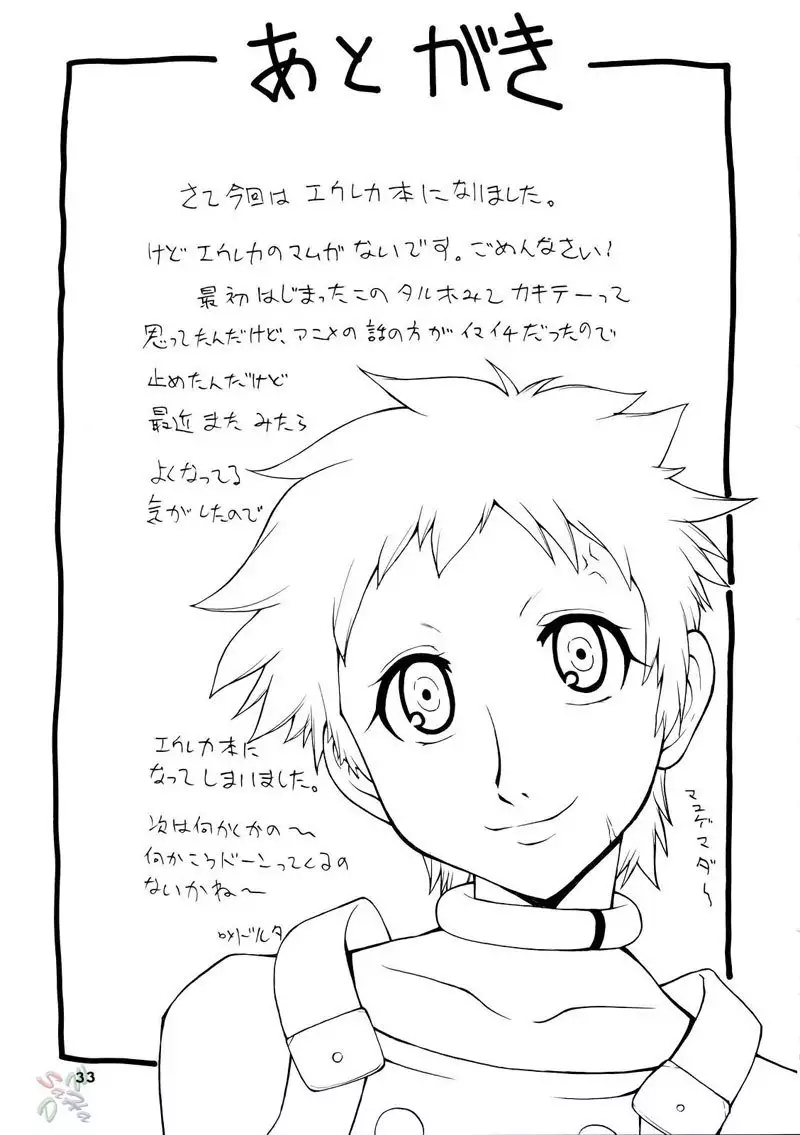 あとがき
さて今回は エウレカ本になりました。
けど エウレカのマムが ないです。ごめんなさい!
最初 はじまったこの タルホみて カキテーって
思ってたんだけど、アニメの 話の方が イマイチだったので
止めたんだけど
最近 また みたら
よくなってる
気がしたので
エウレカ本に
なってしまいました。
次は何かくかの〜
何かこうドーンってくるの
ないかね〜
マユゲマダ〜
33